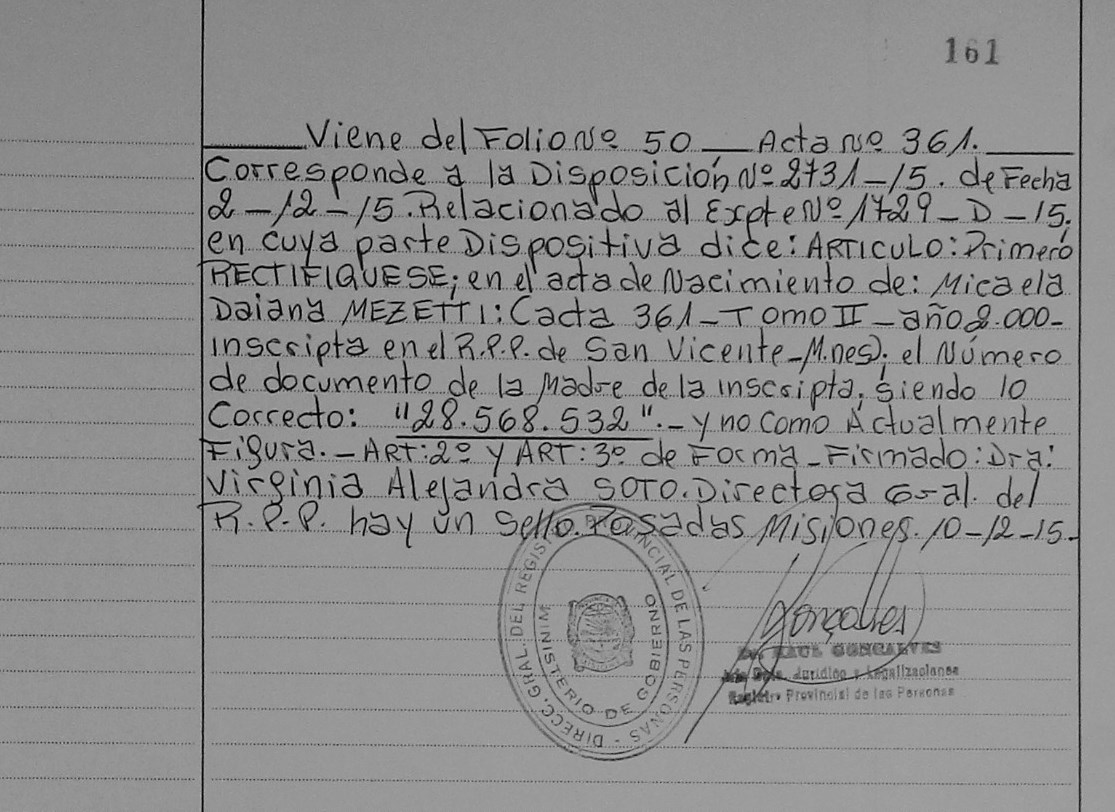 161
Viene del Folio Nº 50 — Acta Nº 361.
Corresponde a la Disposición Nº 2731-15. de Fecha
2-12-15. Relacionado al Expte Nº 1729-D-15;
en cuya parte Dispositiva dice: ARTICULO: Primero
RECTIFIQUESE; en el acta de Nacimiento de: Micaela
Daiana MEZETTI: (acta 361-Tomo II-año 2.000-
inscripta en el R.P.P. de San Vicente-M.nes); el Número
de documento de la Madre de la inscripta, siendo lo
Correcto: "28.568.532".- y no como Actualmente
Figura.- ART: 2º y ART: 3º de Forma-Firmado: Dra:
Virginia Alejandra SOTO. Directora Gral. del
R.P.P. hay un Sello. Posadas Misiones. 10-12-15.-
DIRECC. GRAL. DEL REGISTRO PROVINCIAL DE LAS PERSONAS -
MINISTERIO DE GOBIERNO
Gonçalves
Dr. RAUL GONCALVES
Jefe Dpto. Jurídico y Legalizaciones
Registro Provincial de las Personas